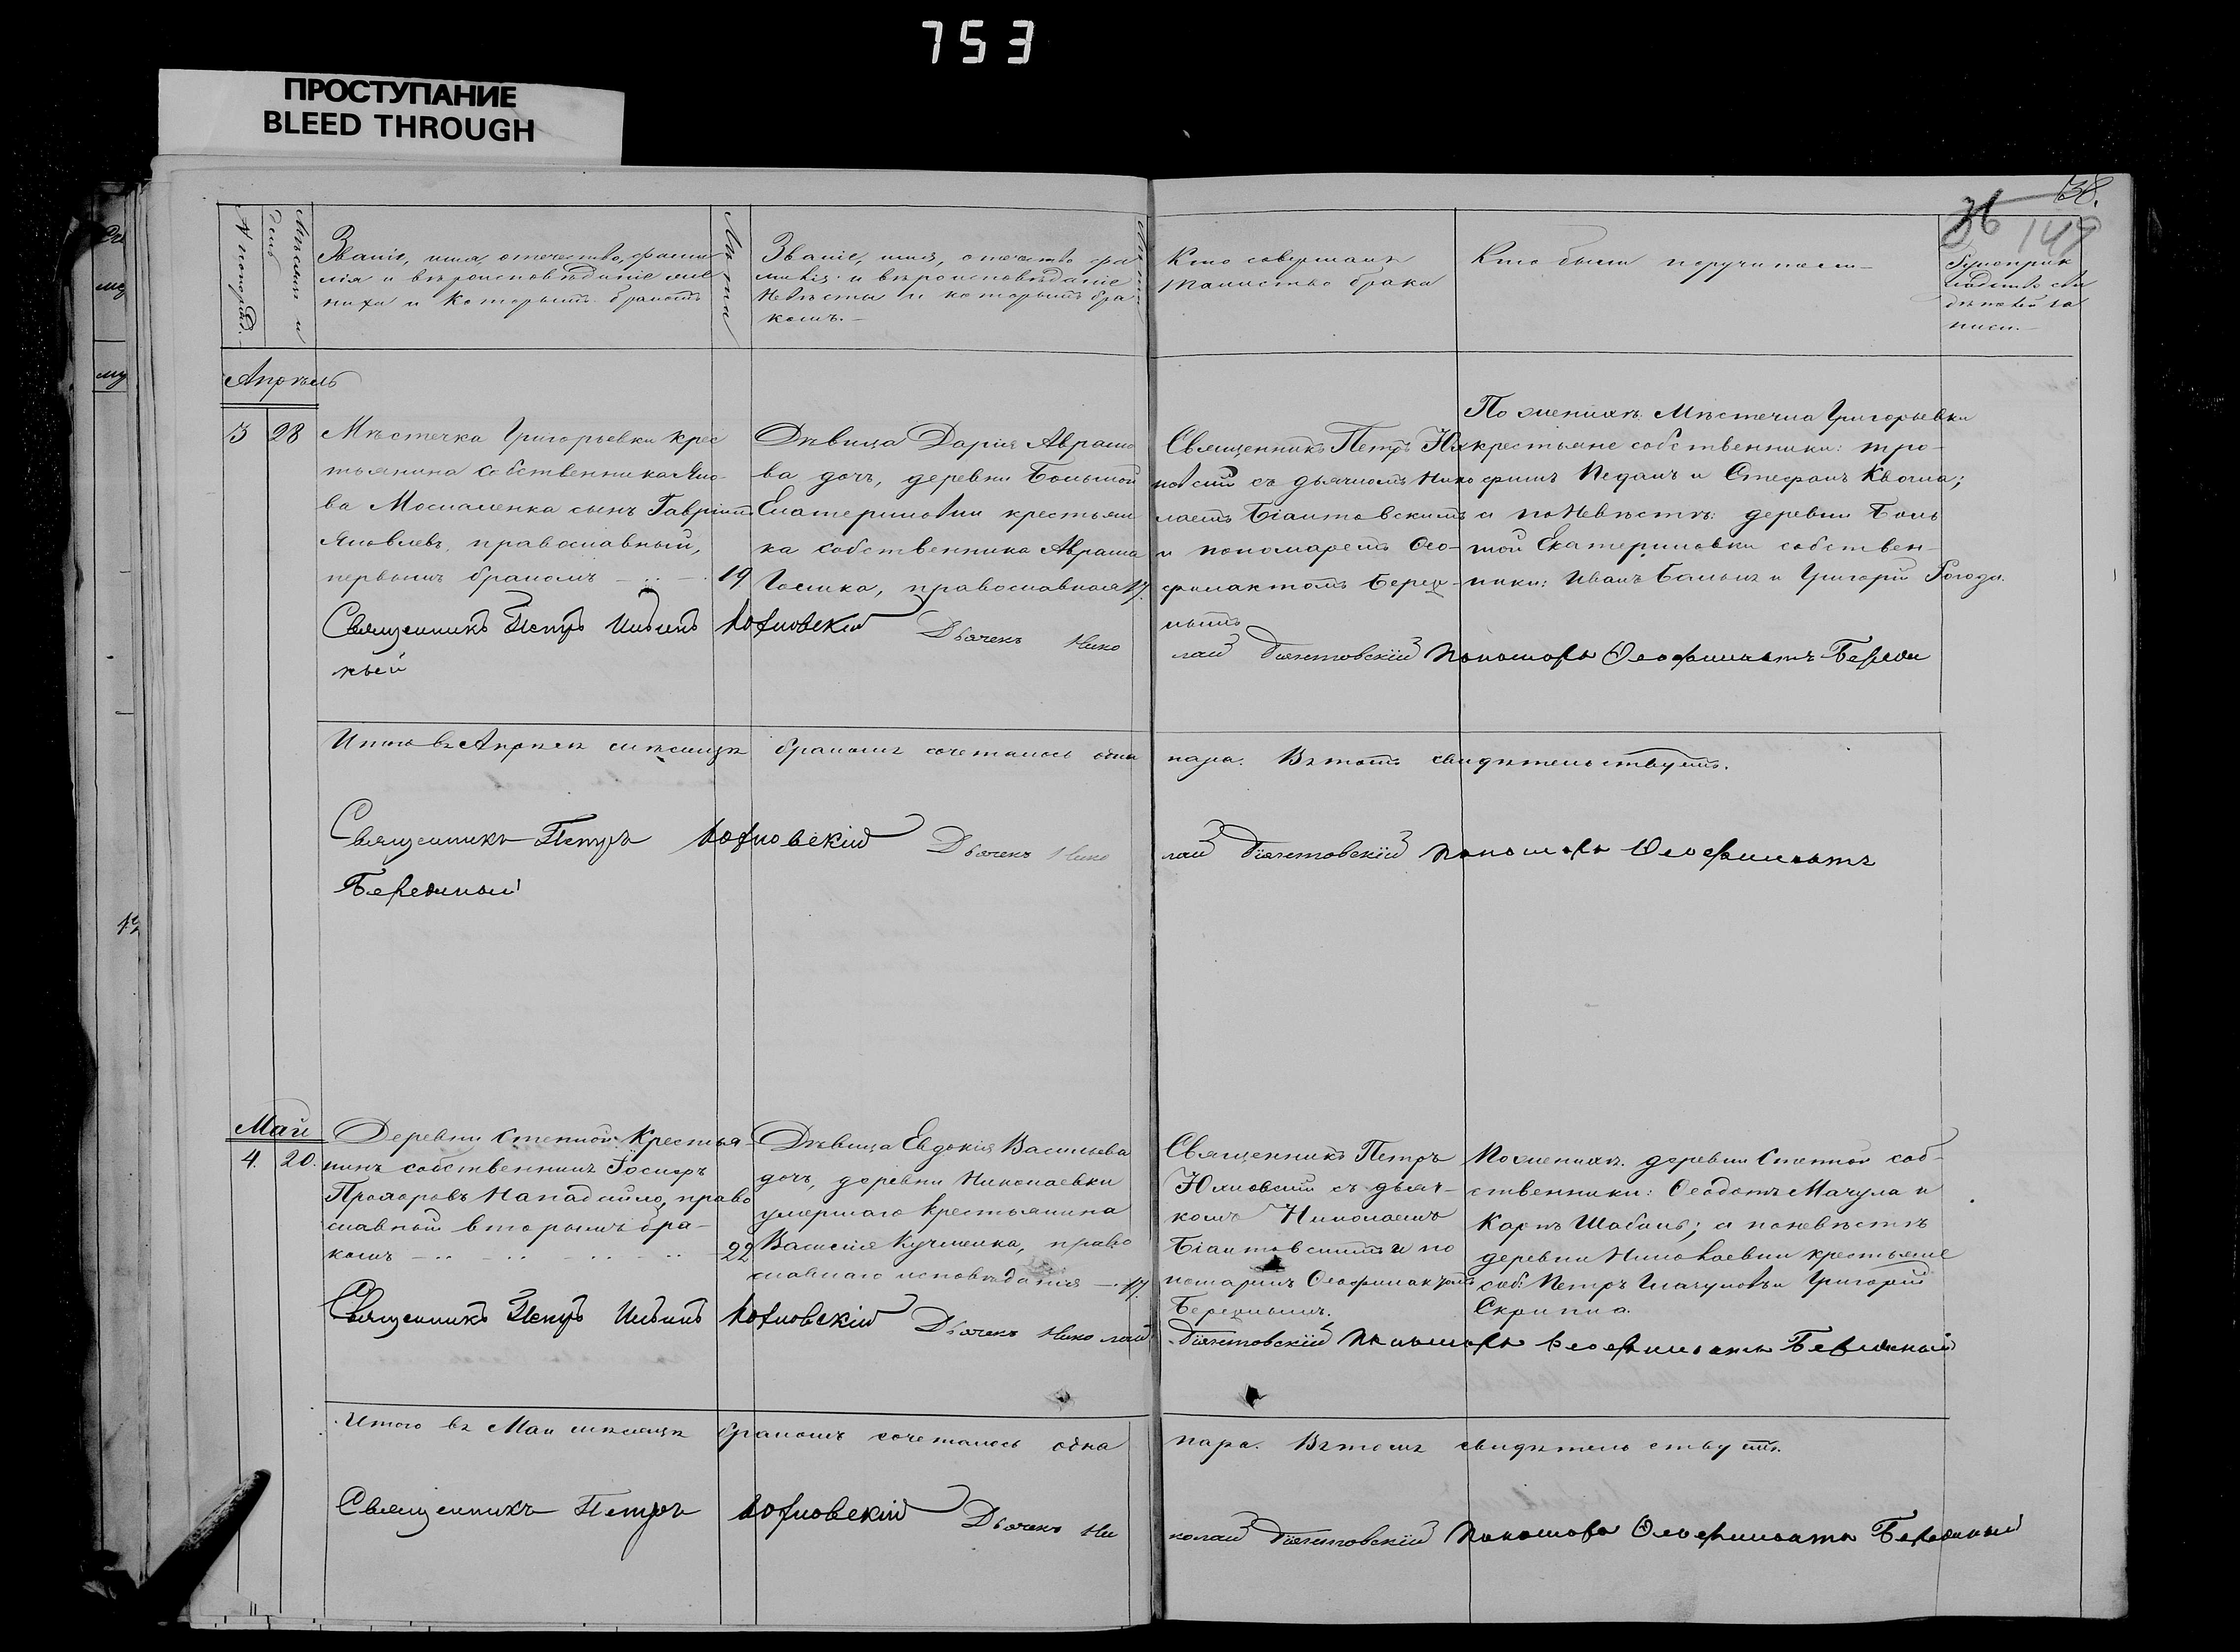 753
ПРОСТУПАНИЕ
BLEED THROUGH
38.
36 149
№ по поряд.
Мѣсяцъ и день
Званіе, имя, отечество, фами
лія и вѣроисповѣданіе же
ниха и которымъ бракомъ
Лѣта
Званіе, имя, отечество фа
милія и вѣроисповѣданіе
невѣсты и которымъ бра
комъ.—
Лѣта
Кто совершалъ
таинство брака
Кто были поручители—
Рукоприк
ладство сви
дѣтелей за
писи.—
Апрѣль
3 28
Мѣстечка Григорьевки крес
тьянина собственника Яко-
ва Москаленка сынъ Гавріилъ
Яковлевъ, православный,
первымъ бракомъ 19
Дѣвица Дарія Аврамо
ва дочь, деревни Большой
Екатериновки крестьян
ка собственника Аврама
православная 17.
Священникъ Петръ Юх
новскій съ дьячкомъ Нико
лаемъ Біантовскимъ
и пономаремъ Ѳео-
филактомъ Березд
нымъ
По женихѣ: Мѣстечка Григорьевки
крестьяне собственники: тро-
фимъ Педанъ и Стефанъ Квоша;
а по невѣстѣ: деревни Боль
шой Екатериновки собствен-
ники: Иванъ Балымъ и Григорій Рогоза.
Священникъ Петръ Юхновскій Дьячекъ Нико
лай Біянтовскій пономарь Ѳеофилактъ Берези
ный
Итого въ Апрѣлѣ мѣсяцѣ бракомъ сочеталось одна пара. Въ томъ свидѣтельствуютъ.
Священникъ Петръ Юхновскій Дьячекъ Нико лай Біянтовскій пономарь Ѳеофилактъ
Березиный
Май
4. 20.
Деревни Степной Крестья-
нинъ собственникъ Іосифъ
Прохоровъ Нападайло, право
славный вторымъ бра-
комъ 22
Дѣвица Евдокія Васильева
дочь, деревни Николаевки
умершаго крестьянина
Василія Кучменка, право
славнаго исповѣданія 17.
Священникъ Петръ
Юхновскій съ дьяч-
комъ Николаемъ
Біантовскимъ и по
номаремъ Ѳеофилактомъ
Березнымъ.
По женихѣ: деревни Степной соб-
ственники: Ѳеодотъ Мачула и
Карпъ Шабаль; а по невѣстѣ
деревни Николаевки крестьяне
соб: Петръ и Григорій
Скрипка.
Священникъ Петръ Юхновскій Дьячекъ Николай
Біянтовскій пономарь Ѳеофилактъ Березиный
Итого въ Маи мѣсяцѣ бракомъ сочеталось одна пара. Въ томъ свидѣтельствуютъ.
Священникъ Петръ Юхновскій Дьячекъ Ни колай Біянтовскій пономарь Ѳеофилактъ Березиный